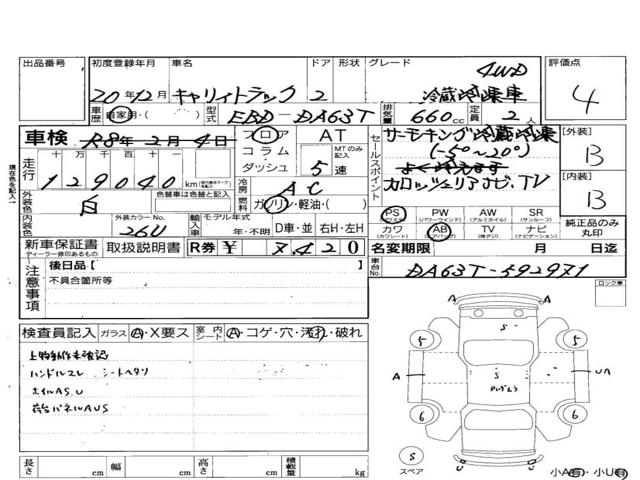 出品番号 初度登録年月 車名 ドア 形状 グレード 評価点
4WD
20年12月 キャリィトラック 2 冷蔵冷凍車 4
車歴 自家用・( ) 型式 EBD-DA63T 排気量 660cc 定員 2人
車検 R8年2月4日 フロア AT セールスポイント サーモキング冷蔵冷凍 [外装]
現在色を記入 走行 十 万 千 百 十 一 コラム MTのみ記入 (-5°~20°) B
129040 km ダッシュ 5速 よく冷えます
外装色 白 色替車は色替と記入 冷房 AC カロッツェリアナビ、TV [内装]
燃料 ガソリン・軽油・( ) B
内装色 外装カラーNo. 26U 輸入車 モデル年式 年・不明 D車・並 右H・左H
PS PW(パワーウィンドウ) AW(アルミホイル) SR(サンルーフ) 純正品のみ丸印
カワ(カワシート) AB(エアバッグ) TV ナビ(ナビゲーション)
新車保証書 ディーラー捺印あるもの 取扱説明書 R券 ¥ 8420 名変期限 月 日迄
注意事項 後日品【 】 車台No. DA63T-592971
不具合箇所等 ロック車
検査員記入 ガラス A・X要ス 室内シート A・コゲ・穴・汚れ・破れ
上物動作未確認
ハンドルスレ シートヘタリ
ホイルAS、U
荷台パネルAUS
A S 5 5
A S A UA
6 6
S スペア U U
長さ cm 幅 cm 高さ cm 積載量 kg 小A(有)・小U(有)